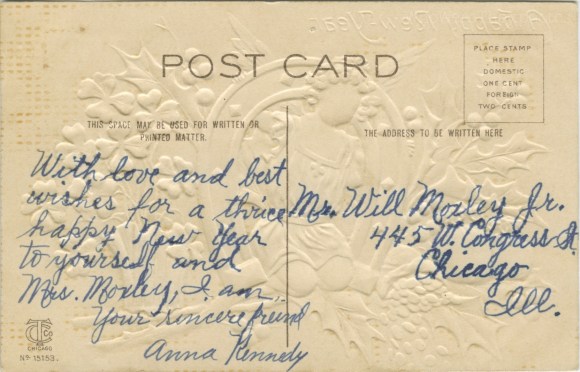 A Happy New-Year
POST CARD
PLACE STAMP
HERE
DOMESTIC
ONE CENT
FOREIGN
TWO CENTS
THIS SPACE MAY BE USED FOR WRITTEN OR
PRINTED MATTER.
THE ADDRESS TO BE WRITTEN HERE
With love and best
wishes for a thrice
happy New Year
to yourself and
Mrs. Moxley, I am,
Your sincere friend
Anna Kennedy
Mr. Will Moxley Jr.
445 W. Congress St.
Chicago
Ill.
CHICAGO
No 15153.